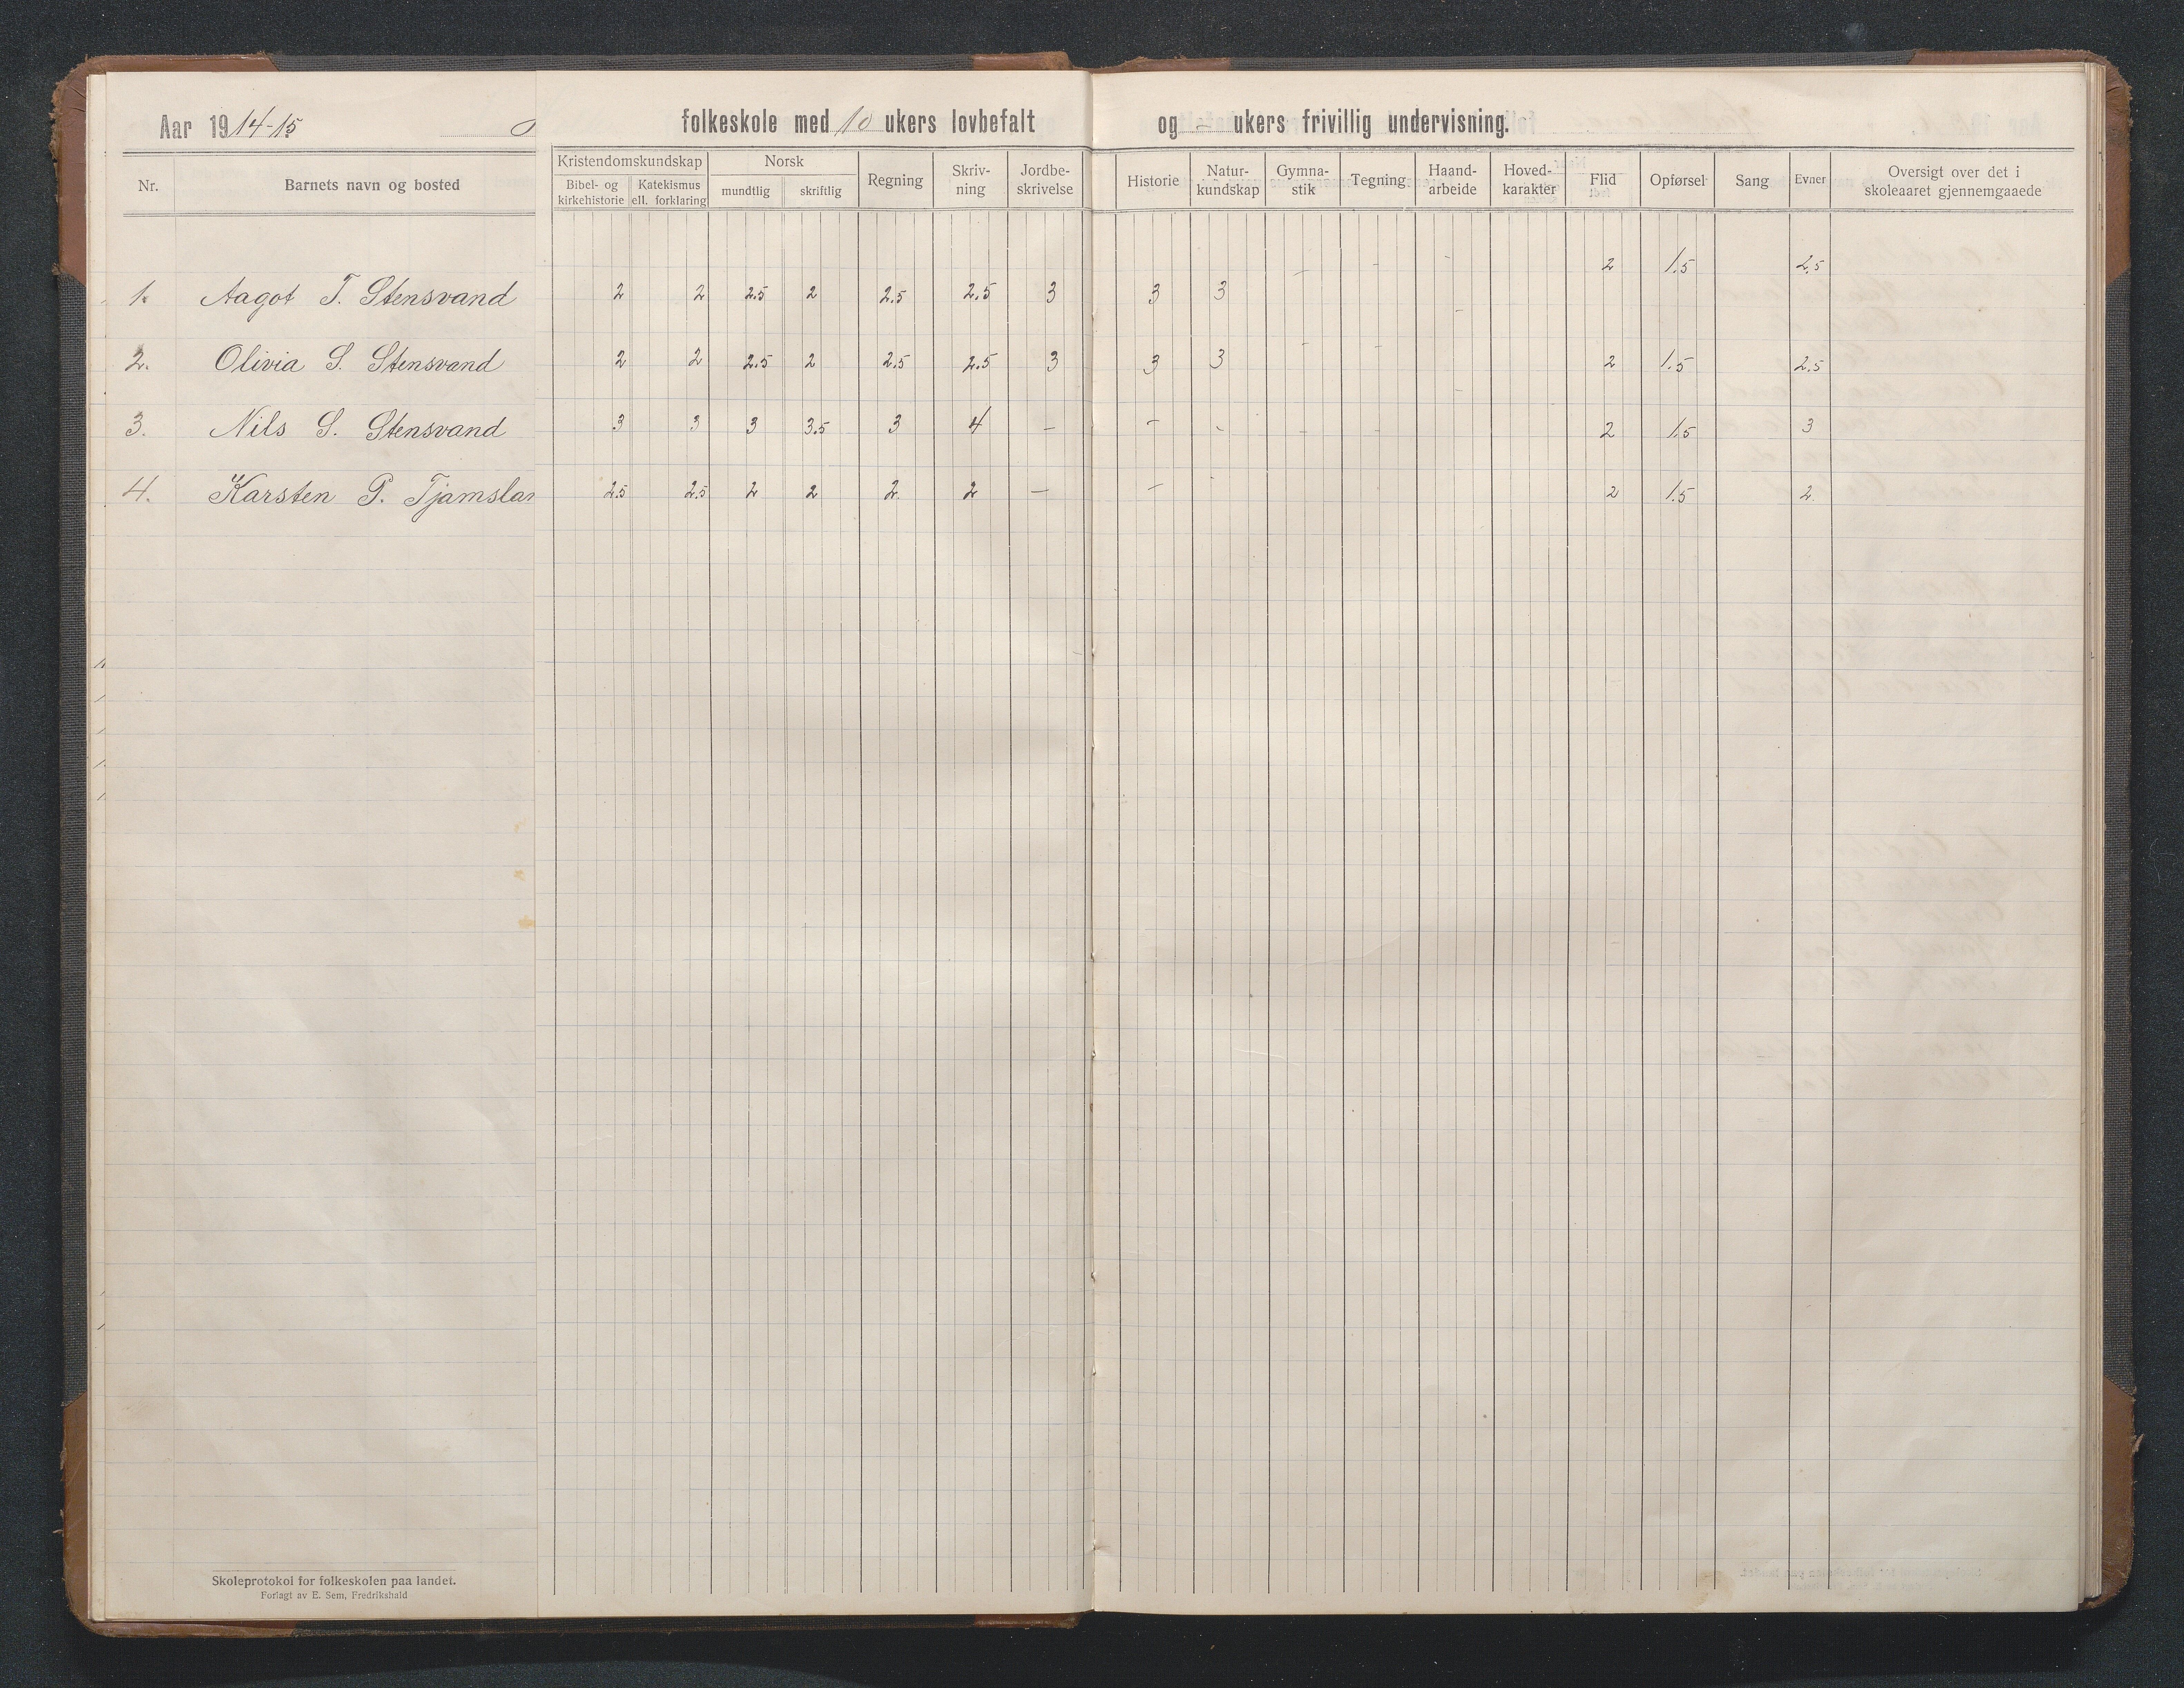 Aar 1914-15 folkeskole med 10 ukers lovbefalt og - ukers frivillig undervisning.
Nr. Barnets navn og bosted Kristendomskundskap Bibel- og kirkehistorie Katekismus ell. forklaring Norsk mundtlig skriftlig Regning Skriv-ning Jordbe-skrivelse Historie Natur-kundskap Gymna-stik Tegning Haand-arbeide Hoved-karakter Flid Opførsel Sang Evner Oversigt over det i skoleaaret gjennemgaaede
1. Aagot T. Stensvand 2 2 2.5 2 2.5 2.5 3 3 3 - - - 2 1.5 2.5
2. Olivia S. Stensvand 2 2 2.5 2 2.5 2.5 3 3 3 - - - 2 1.5 2.5
3. Nils S. Stensvand 3 3 3 3.5 3 4 - - - - - - 2 1.5 3
4. Karsten P. Tjamslan 2.5 2.5 2 2 2 2 - - - 2 1.5 2
Skoleprotokol for folkeskolen paa landet.
Forlagt av E. Sem, Fredrikshald